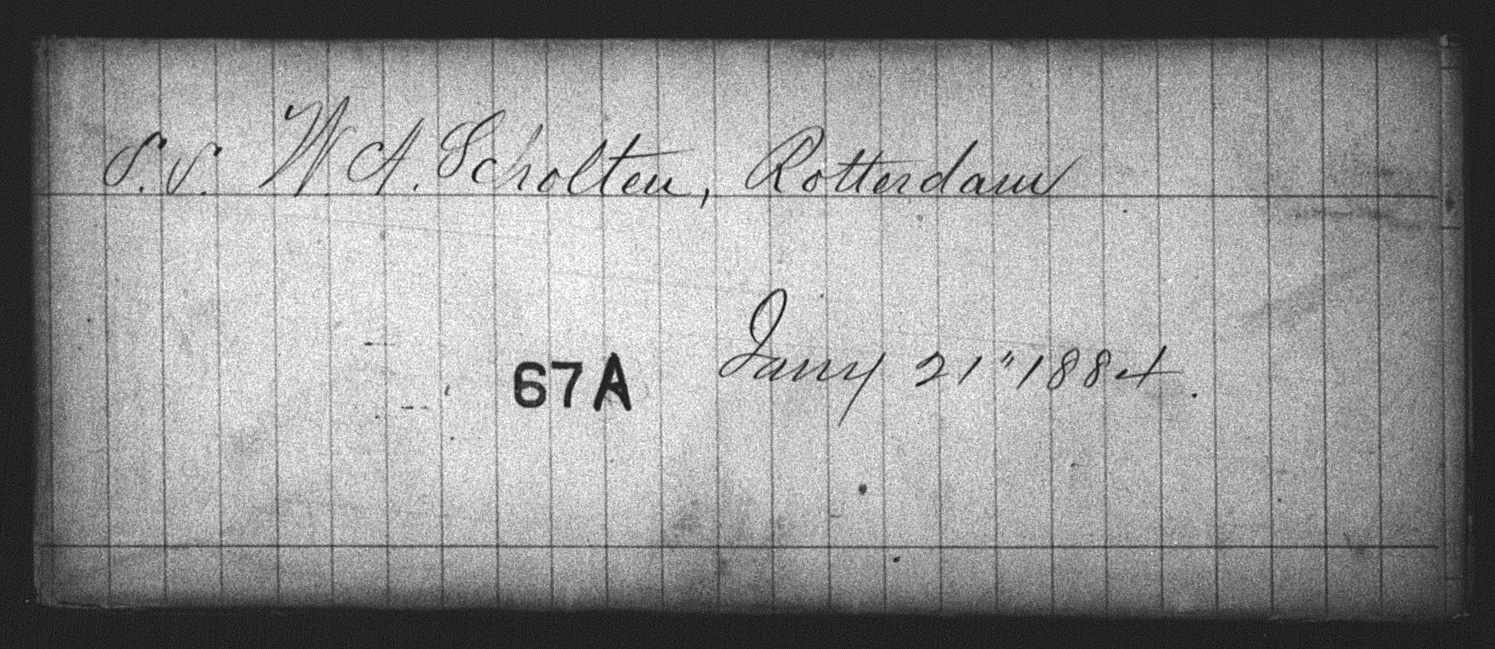 S.S. W.A. Scholten, Rotterdam
Jany 21" 1884.
67A